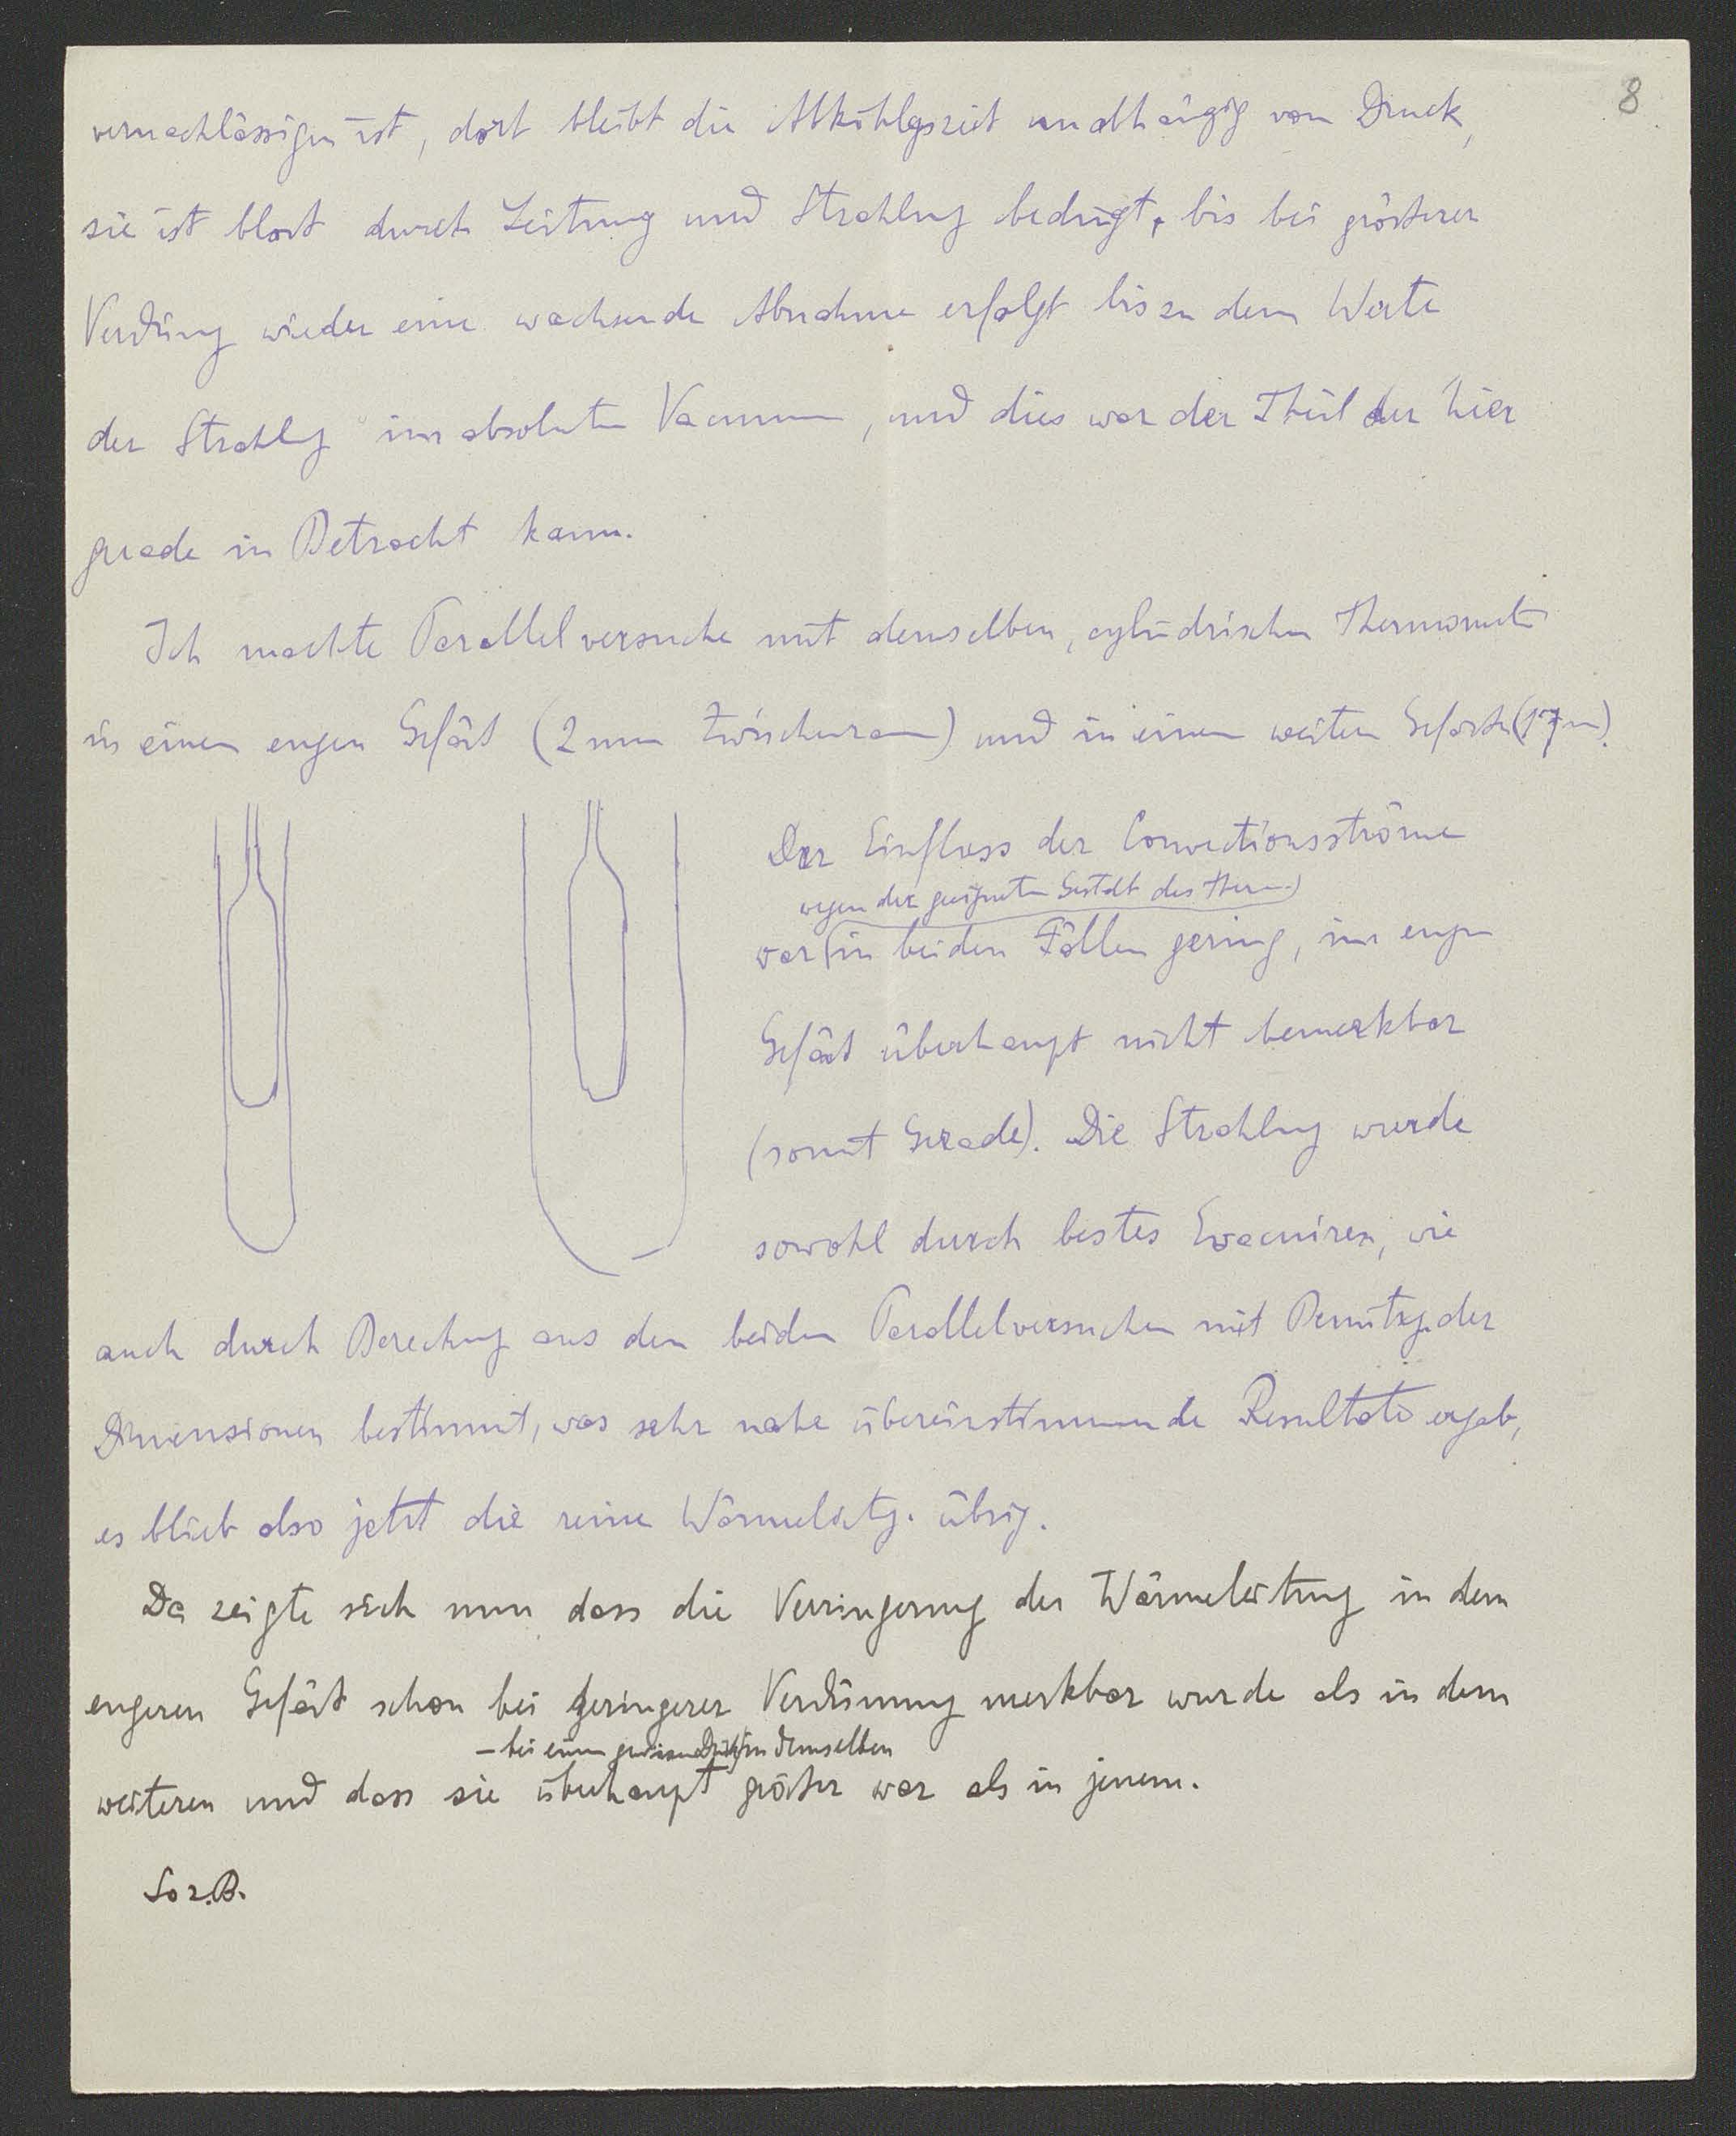 8
vernachlässigen ist, dort bleibt die Abkühlgszeit unabhängig vom Druck,
sie ist blost durch Leitung und Strahlung bedingt, bis bei grösterer
Verdüng wieder eine wachsende Abnahme erfolgt bis zu dem Werte
der Strahlg im absoluten Vacuum, und dies war der Theil der hier
grade in Betracht kam.
Ich machte Parallelversuche mit demselben, cylindrischen Thermomet
in einem engen Gefäst (2 mm Zwischenraum) und in einem weiten Gefäste
Der Einfluss der Convectionsströme
wegen der geeigneten Gestalt des Therm.
war (in beiden Fällen gering, im engen
Gefäst überhaupt nicht bemerkbar
(somit Gerade). Die Strahlung wurde
sowohl durch bestes Evacuiren, wie
auch durch Berechng aus den beiden Parallelversuchen mit Benützg. der
Dimensionen bestimmt, was sehr nahe übereinstimmende Resultate ergab,
es blieb also jetzt die reine Wärmeleitg. übrig.
Da zeigte sich nun dass die Verringerung der Wärmeleitung in dem
engeren Gefäst schon bei geringerer Verdünnung merkbar wurde als in dem
– bei einem gewissen Druck in demselben
weiteren und dass sie überhaupt gröster war als in jenem.
So z.B.